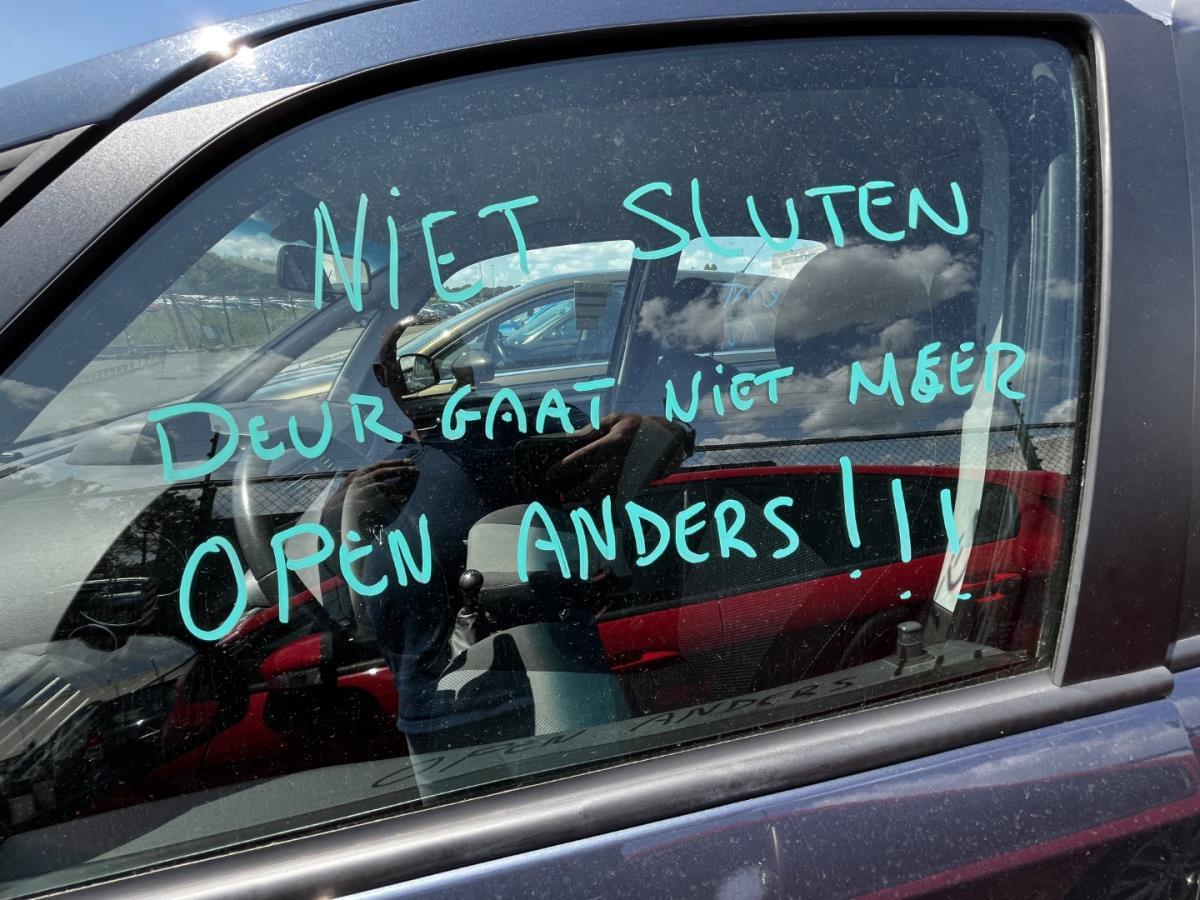 NIET SLUTEN
DEUR GAAT NIET MEER
OPEN ANDERS!!!